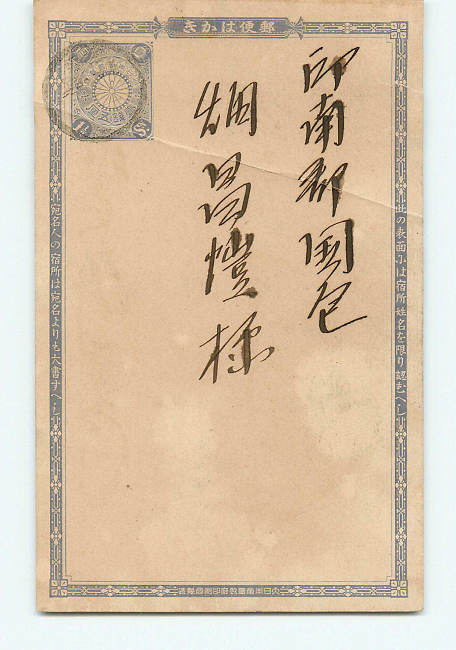 郵便はがき
此の表面には宿所姓名を限り認むへし
印南郡国包
畑昌愷様
宛名人の宿所は宛名よりも大書すへし
大日本帝國政府印刷局製造